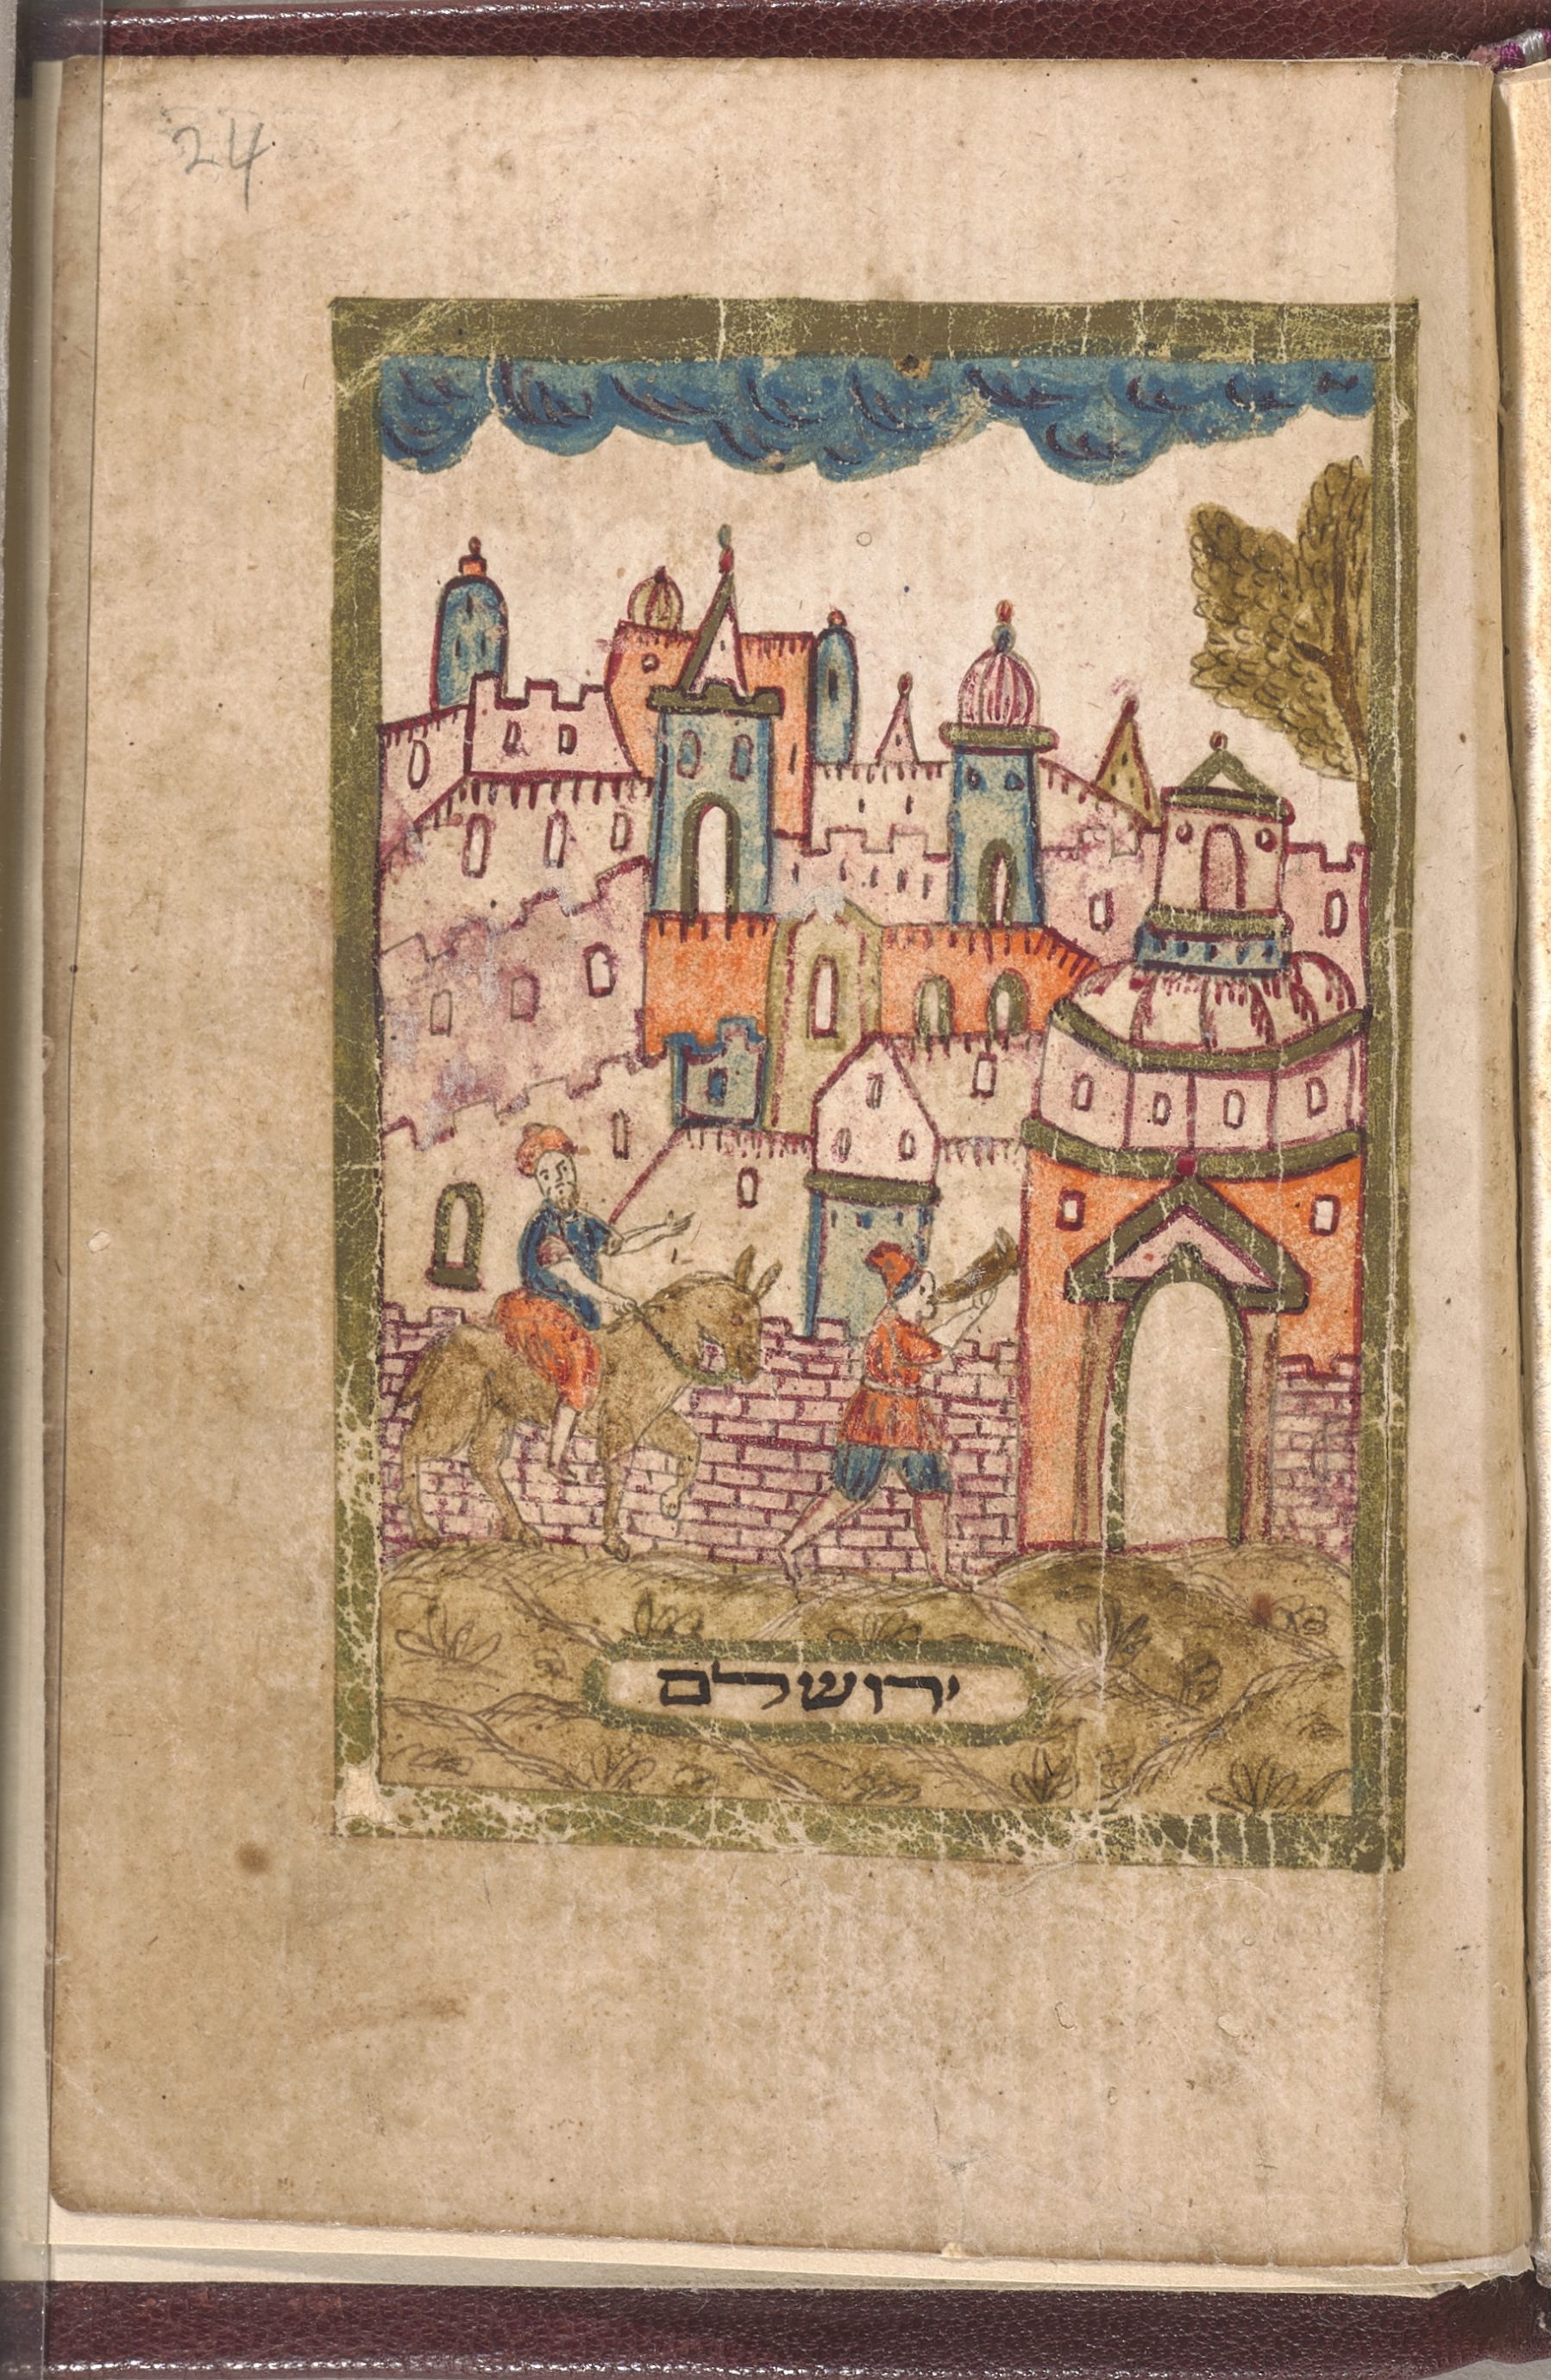 24
ירושלם